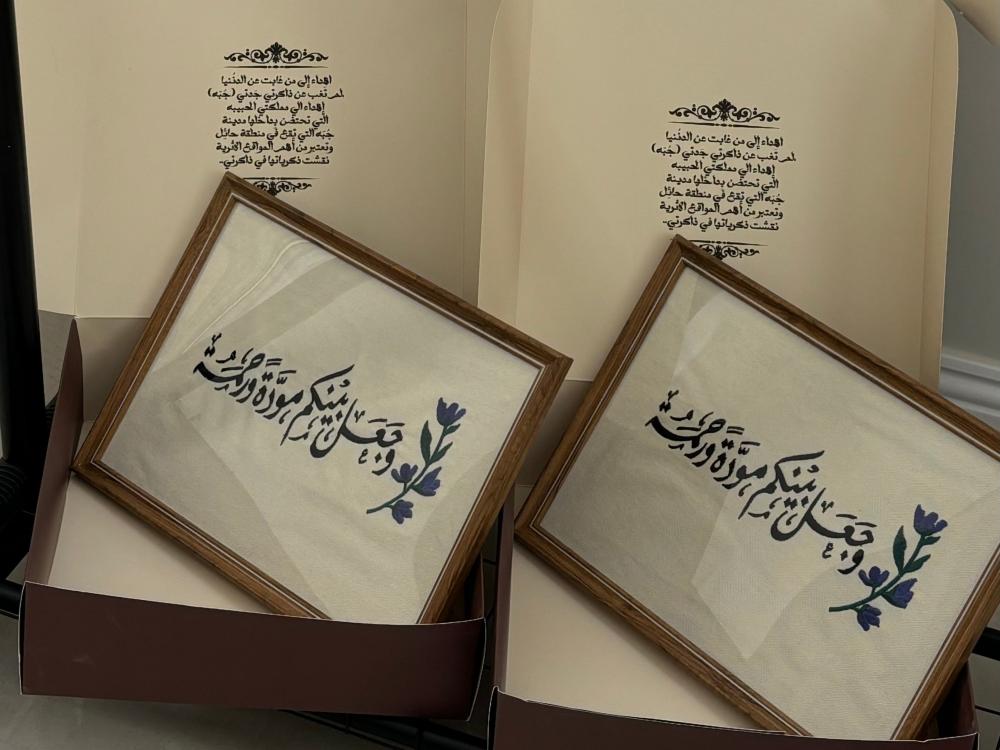 اهداء إلى من غابت عن الدُنيا
لم تغب عن ذاكرتي جدتي (جُبَه)
إهداء الي مملكتي الحبيبه
الّتي تحتضن بداخلها مدينة
جُبَه الّتي يقع في منطقة حائل
وتعتبر من أهم المواقع الأثرية
نقشت ذكرياتها في ذاكرتي..
وَجَعَلَ بَيْنَكُم مَوَدَّةً وَرَحْمَةً
اهداء إلى من غابت عن الدُنيا
لم تغب عن ذاكرتي جدتي (جُبَه)
إهداء الي مملكتي الحبيبه
الّتي تحتضن بداخلها مدينة
جُبَه الّتي يقع في منطقة حائل
وتعتبر من أهم المواقع الأثرية
نقشت ذكرياتها في ذاكرتي..
وَجَعَلَ بَيْنَكُم مَوَدَّةً وَرَحْمَةً